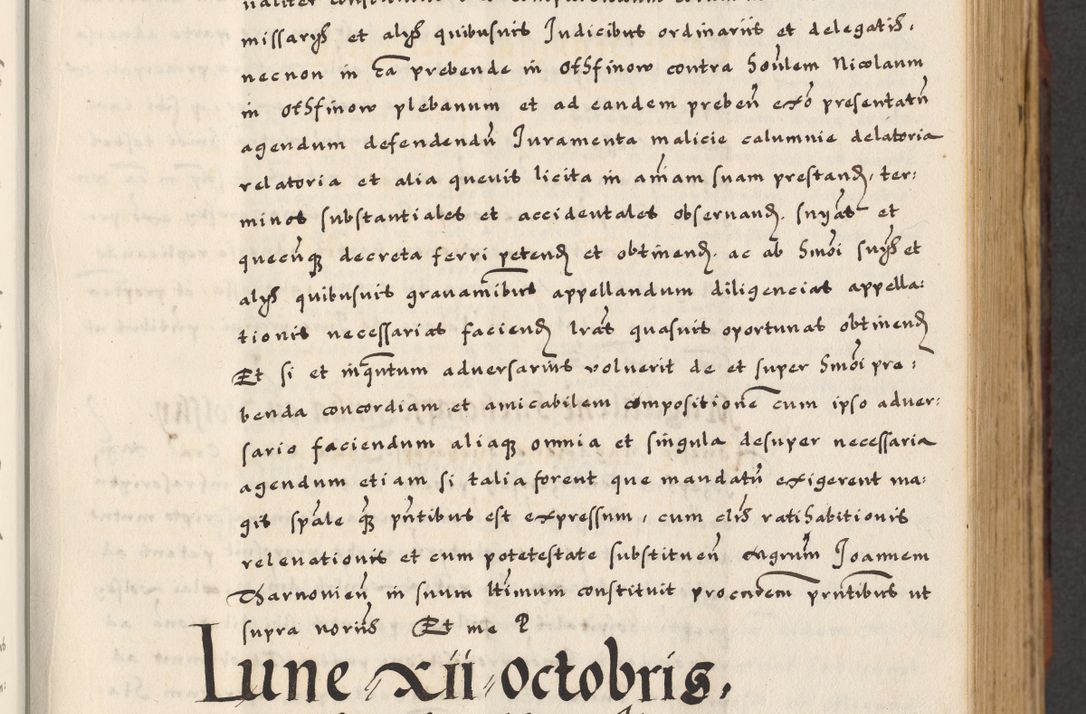 missarys et alys quibusuis Iudicibus ordinariis et delegatis.
necnon in ca prebende in Othfinow contra honulem Nicolaum
in Othfinow plebanum et ad eandem preben exo presentatu
agendum defendendu Iuramenta malicie calumnie delatoria
relatoria et alia quevis licita in aniam suam prestand, ter:
minos substantiales et accidentales observand. snyas et
quecunque decreta ferri petend et obtinend. ac ab hmoi snys et
alys quibusuis gravaminibus appellandum diligencias appella:
tionis necessarias faciend lras quasuis oportunas obtinend
Et si et inquantum adversarius voluerit de et super hmoi pre:
benda concordiam et amicabilem compositione cum ipso adver:
sario faciendum aliaque omnia et singula desuper necessaria
agendum etiam si talia forent que mandatu exigerent ma:
gis spale que pntibus est expressum, cum clis ratihabitionis
relevationis et cum potetestate substituen mgrum Joannem
Tharnonien in suum ltimum constituit procndem prntibus ut
supra noriis Et me
Lune xii octobris,